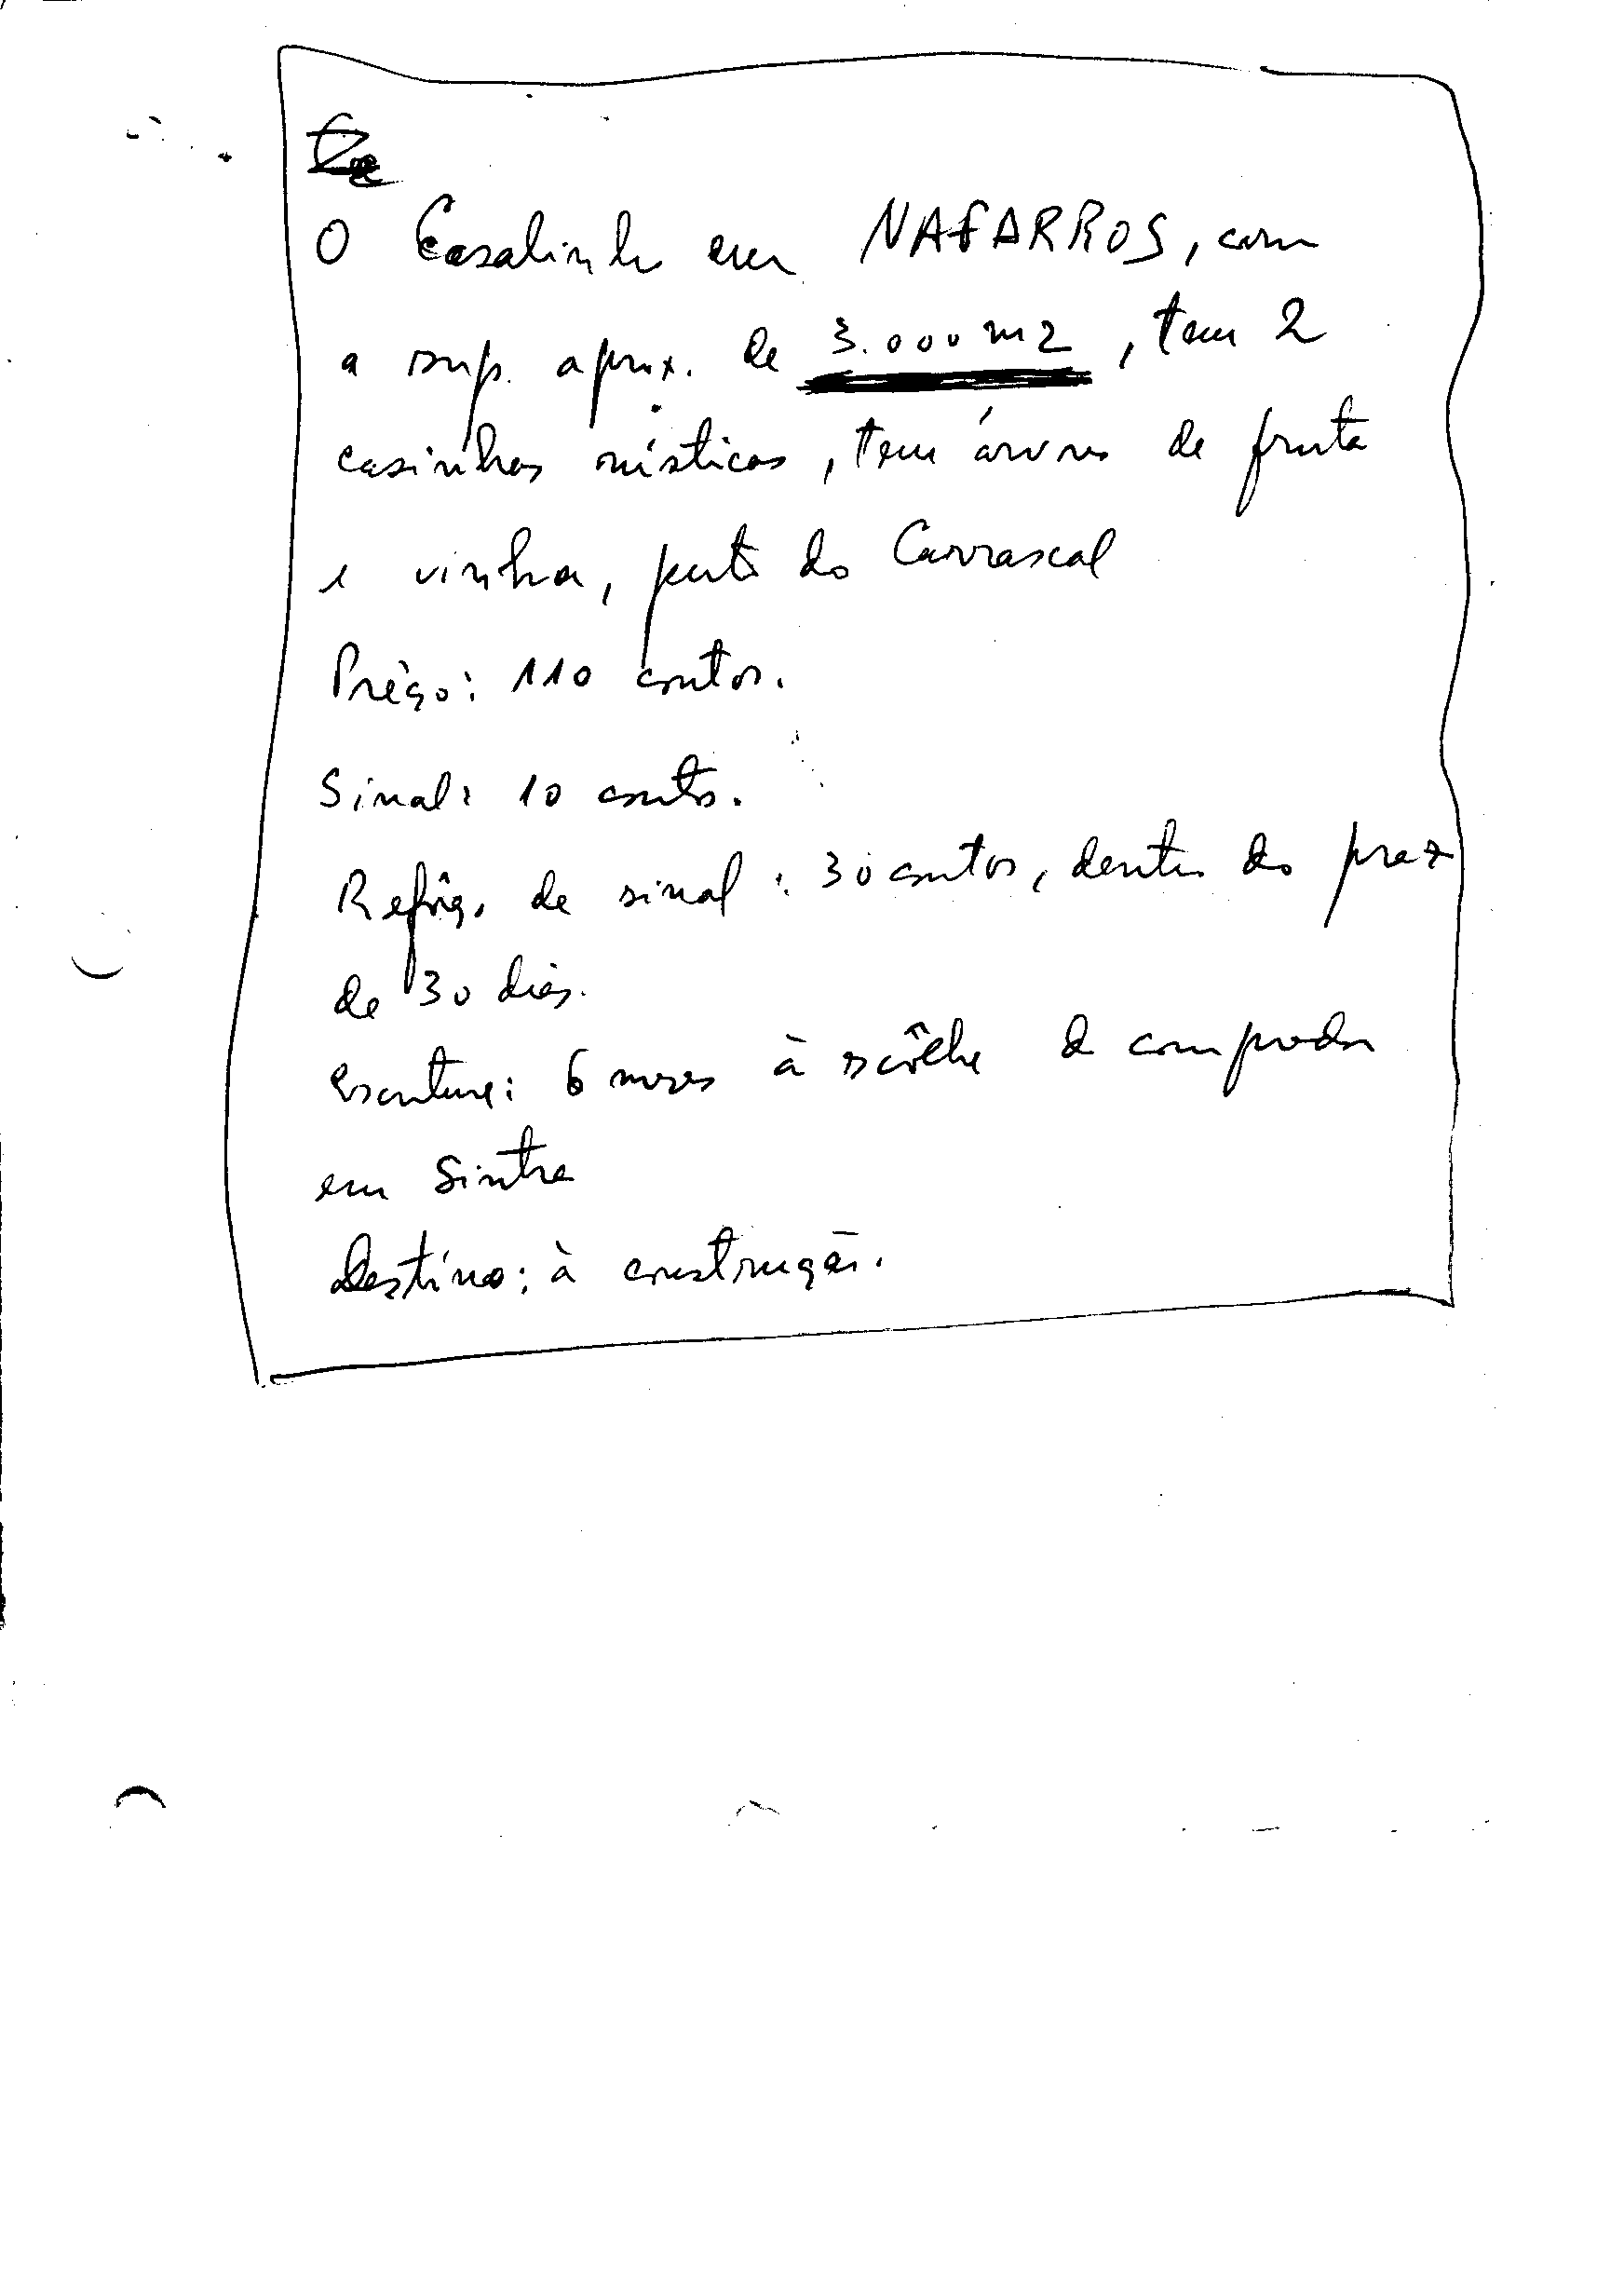 O Casalinho em NAFARROS, com
a sup. aprox. de 3.000 m2, tem 2
casinhas rústicas, tem árvores de fruta
e vinha, perto do Carrascal
Prêço: 110 contos.
Sinal: 10 contos.
Refôrço de sinal: 30 contos, dentro do prazo
de 30 dias.
Escritura: 6 meses à escôlha do comprador
em Sintra
Destino: à construção.